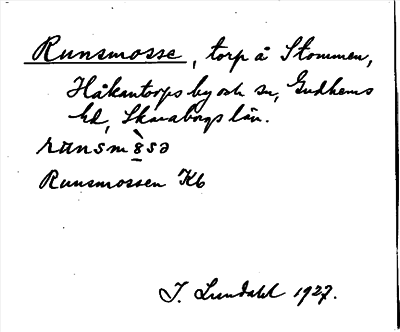 Runsmosse, torp å Stommen,
Håkantorps by och sn, Gudhems
hd, Skaraborgs län.
runsmòsə
Runsmossen Kb
I. Lundahl 1927.